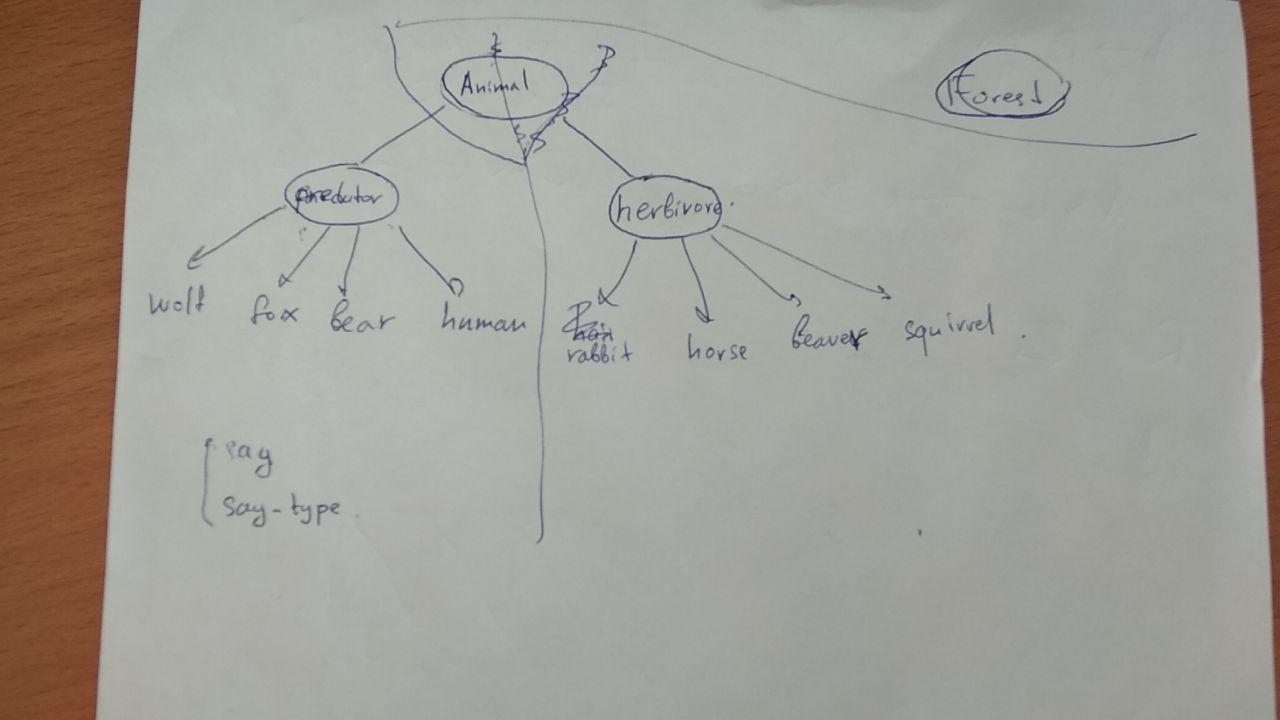 Animal
Forest
predator
herbivore.
wolf
fox
bear
human
rabbit
horse
beaver
squirrel.
say
say-type.